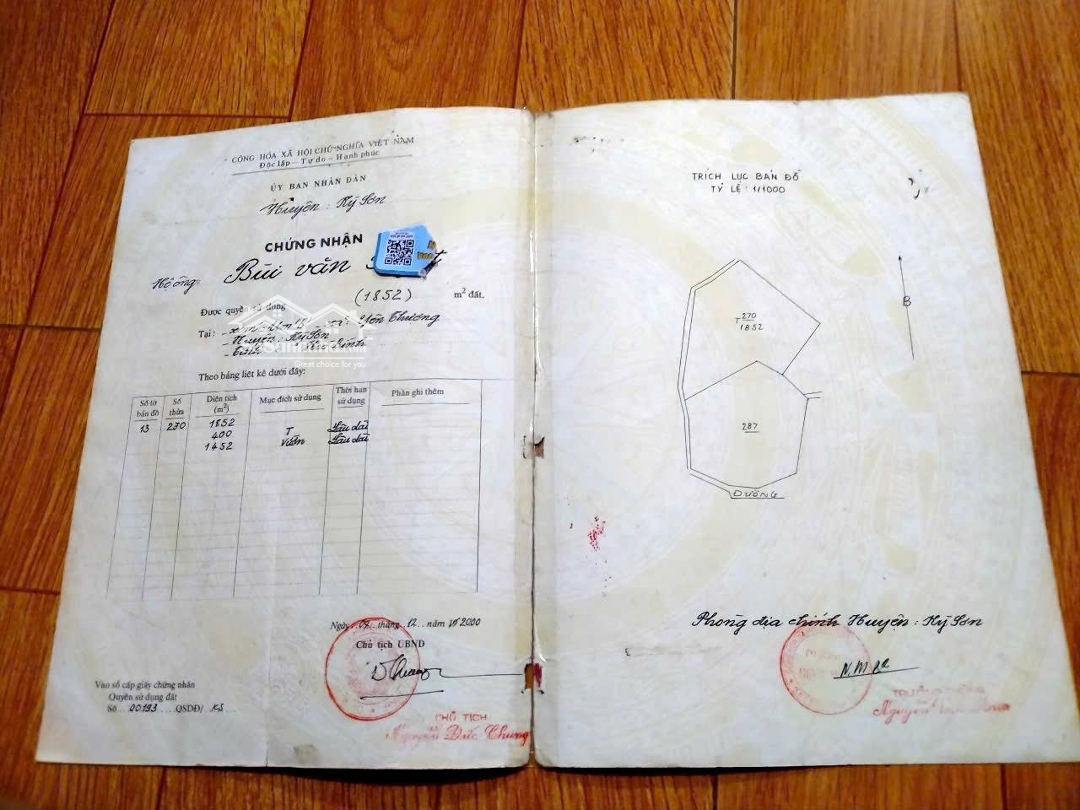 CỘNG HÒA XÃ HỘI CHỦ NGHĨA VIỆT NAM
Độc lập - Tự do - Hạnh phúc
ỦY BAN NHÂN DÂN
Huyện: Kỳ Sơn
CHỨNG NHẬN
Hộ ông: Bùi văn
Được quyền sử dụng (1852) m² đất.
Tại: Yên Thượng
- Huyện: Kỳ Sơn
- Tỉnh
Great choice for you
Theo bảng liệt kê dưới đây:
Số tờ bản đồ Số thửa Diện tích (m²) Mục đích sử dụng Thời hạn sử dụng Phần ghi thêm
13 270 1852
400 T Lâu dài
1452 Vườn Lâu dài
Ngày 07 tháng 12 năm 2000
Chủ tịch UBND
CHỦ TỊCH
Nguyễn Đức Chung
Vào sổ cấp giấy chứng nhận
Quyền sử dụng đất
Số 00193 QSDĐ/ KS
TRÍCH LỤC BẢN ĐỒ
TỶ LỆ: 1/1000
B
T 270
1852
287
ĐƯỜNG
Phòng địa chính Huyện: Kỳ Sơn
TRƯỞNG PHÒNG
Nguyễn